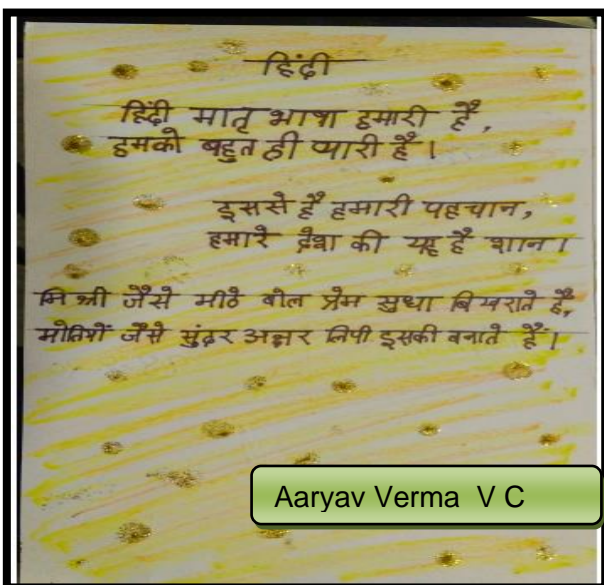 हिंदी
हिंदी मातृ भाषा हमारी है,
हमको बहुत ही प्यारी है।
इससे है हमारी पहचान,
हमारे देश की यह है शान।
मिश्री जैसे मीठे बोल प्रेम सुधा बिखराते है,
मोतियों जैसे सुंदर अक्षर लिपी इसकी बनाते हैं।
Aaryav Verma V C